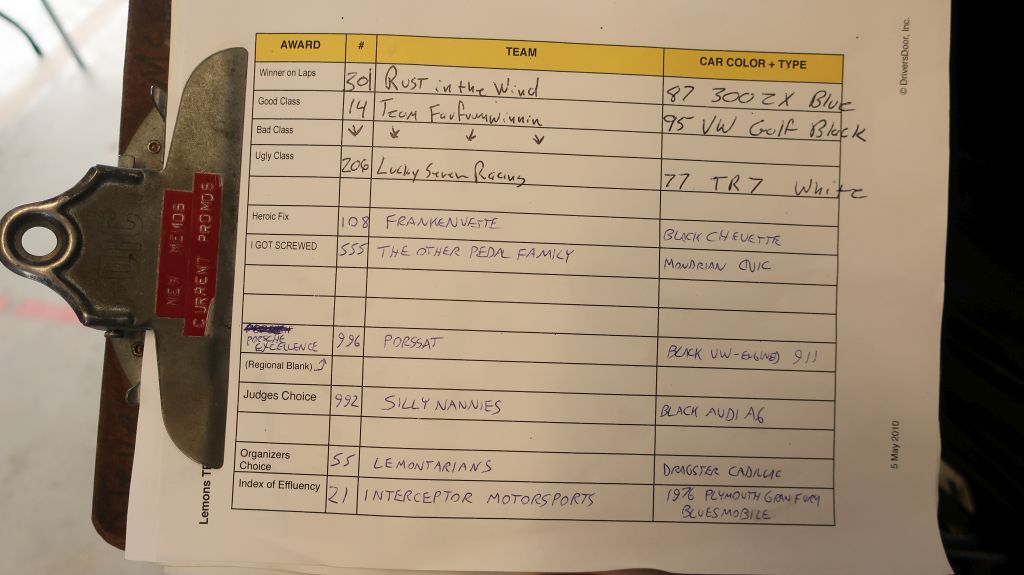 AWARD # TEAM CAR COLOR + TYPE
Winner on Laps 301 RUST in the Wind 87 300ZX Blue
Good Class 14 Team Farfrumwinnin 95 VW Golf Black
Bad Class ↓ ↓ ↓ ↓
Ugly Class 206 Lucky Seven Racing 77 TR7 White
Heroic Fix 108 FRANKENVETTE BLACK CHEVETTE
I GOT SCREWED 555 THE OTHER PEDAL FAMILY MONDRIAN CIVIC
PORSCHE
EXCELLENCE 996 PORSSAT BLACK VW-ENGINED 911
(Regional Blank)
Judges Choice 992 SILLY NANNIES BLACK AUDI A6
Organizers
Choice 55 LEMONTARIANS DRAGSTER CADILLAC
Index of Effluency 21 INTERCEPTOR MOTORSPORTS 1976 PLYMOUTH GRAN FURY
BLUESMOBILE
NEW MEMOS
CURRENT PROMOS
Lemons
© DriversDoor, Inc.
5 May 2010